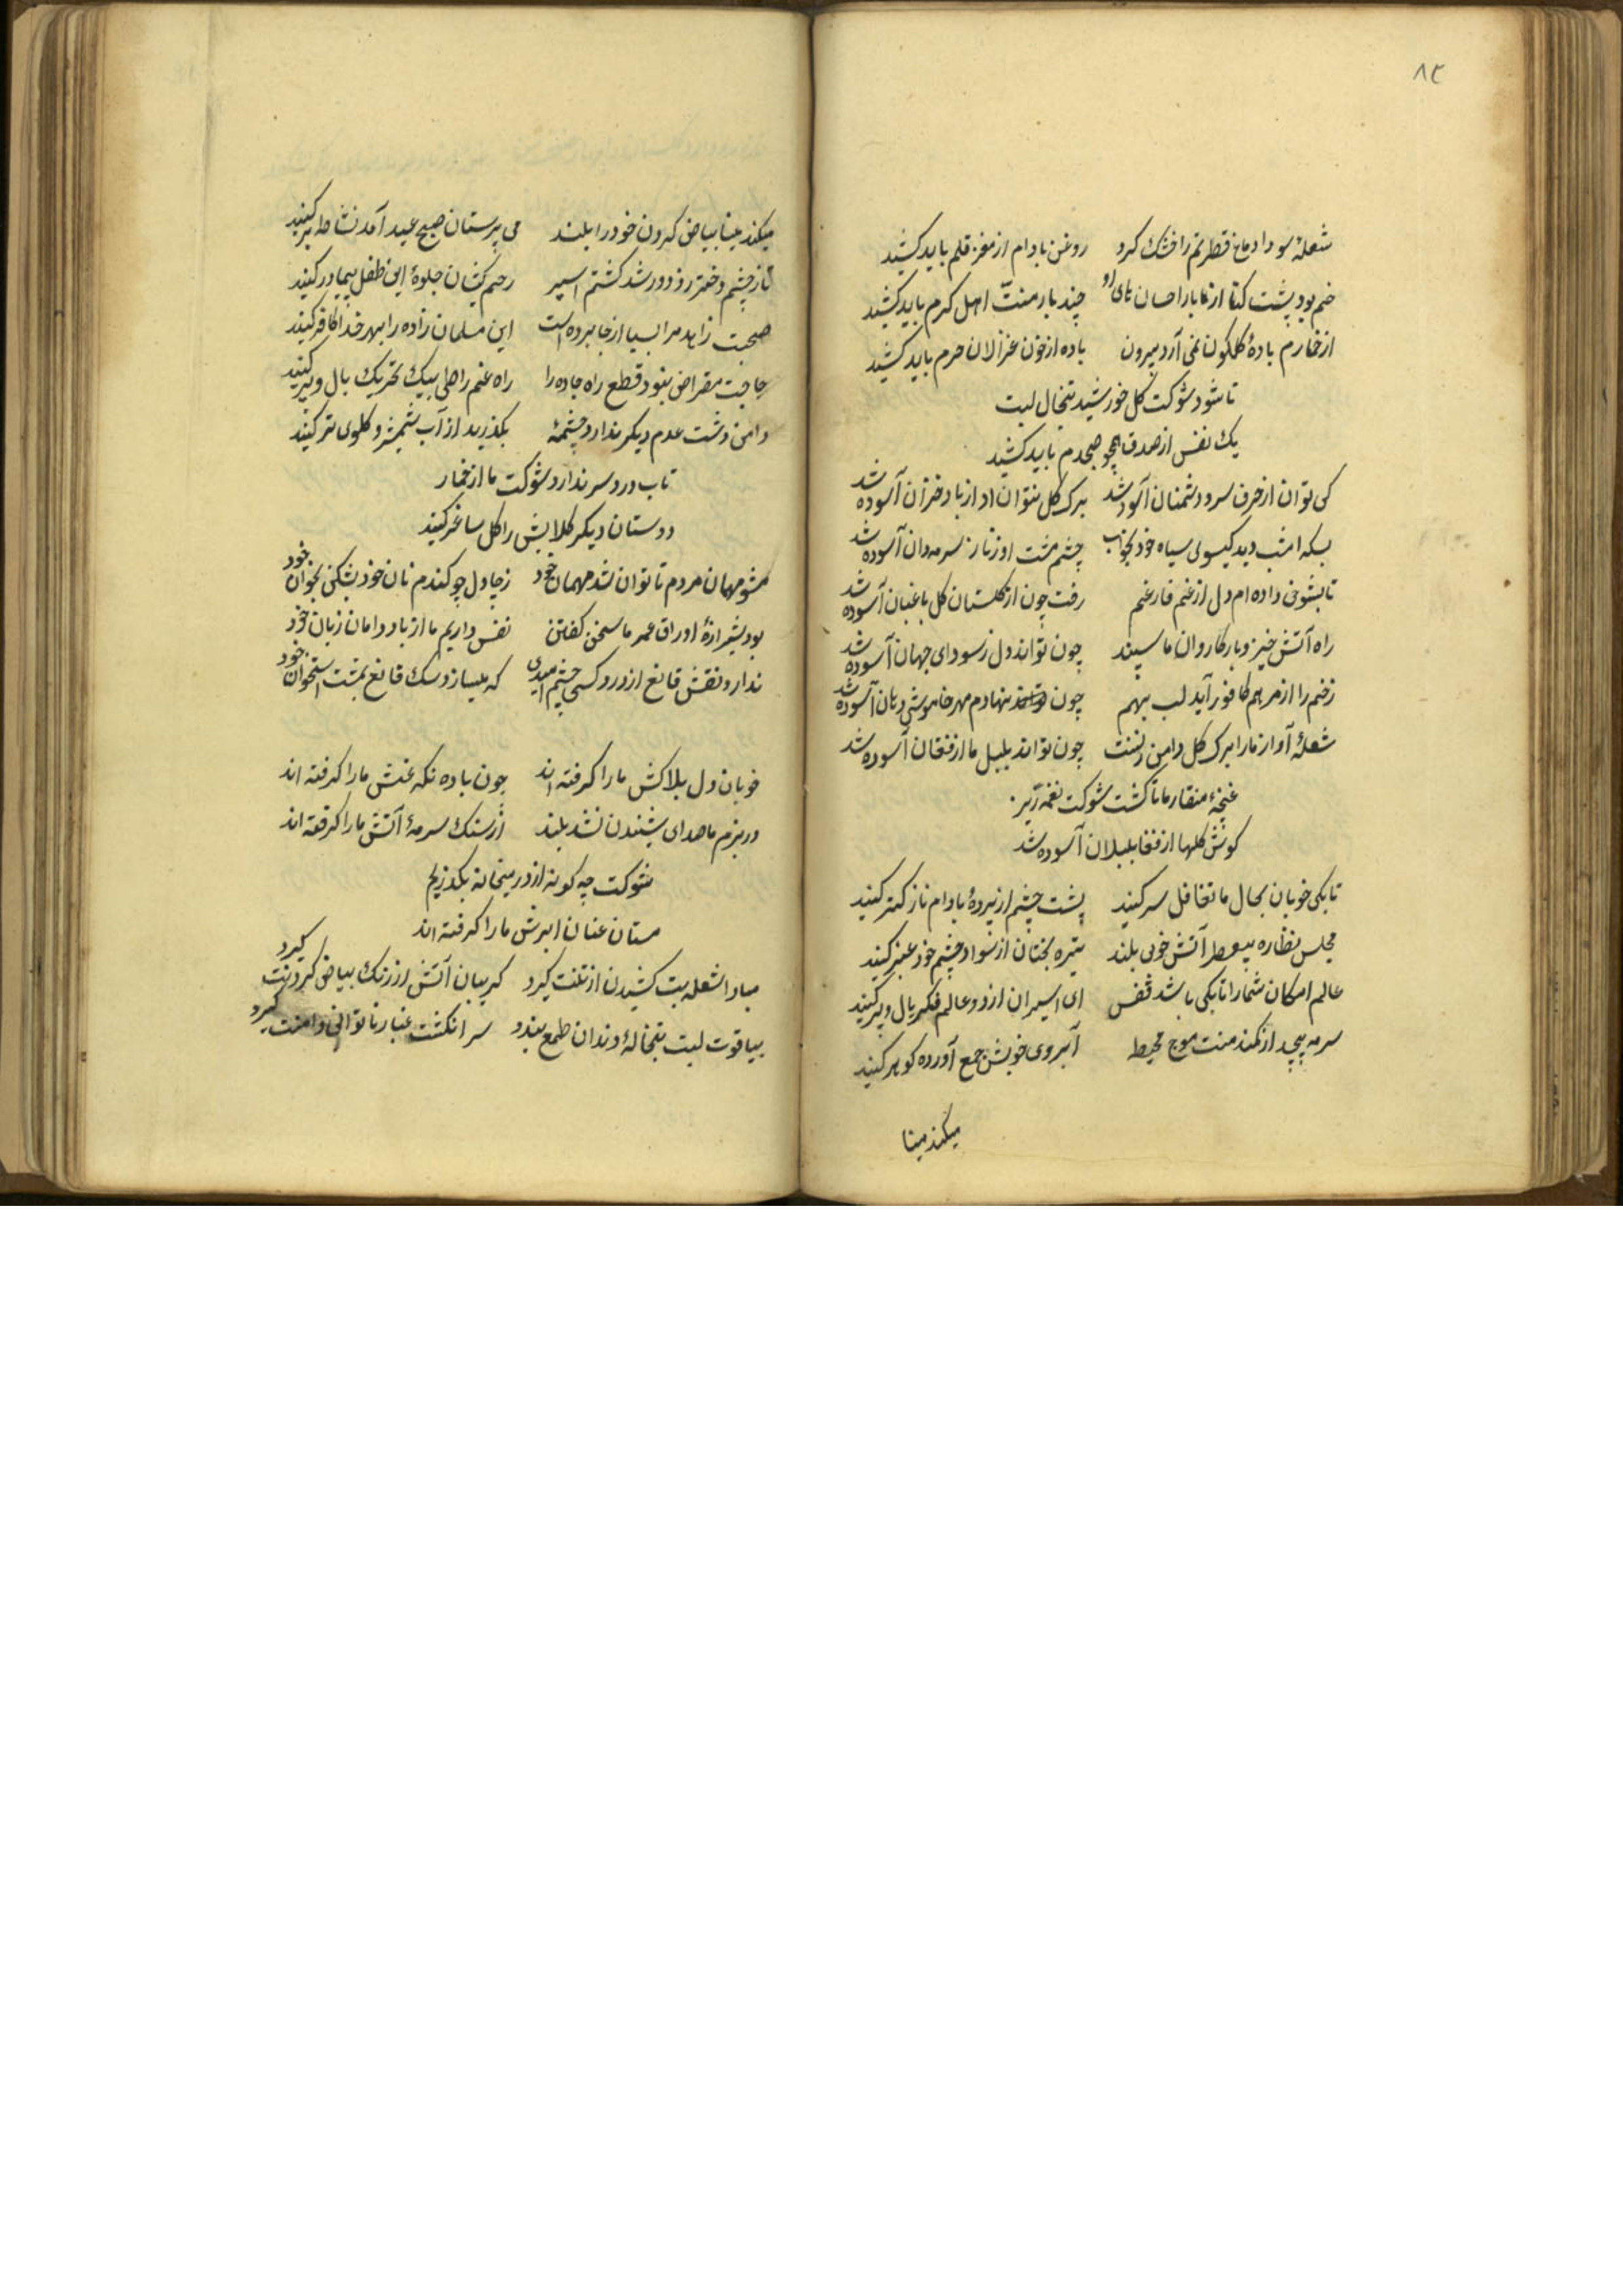 ٨٢
شعلهٔ سودا دماغ فطرتم را خشک کرد روغن بادام از مغز قلم باید کشید
خم بود پشت کتا از بار احسان های او چند بار منت اهل کرم باید کشید
از خمارم بادهٔ کلکون نمی آرد بیرون باده از خون غزالان حرم باید کشید
تا شود شوکت کل خورشید تبخال لبت
یک نفس از صدق همچو صبحدم باید کشید
کی توان از حرف سرد دشمنان آسوده شد برک کل نتوان از باد خزان آسوده شد
بسکه امشب دید کیسوی سیاه خود بخواب چشم مست او ز ناز سرمه دان آسوده شد
تا بشوخی داده ام دل از غم فارغم رفت چون از کلستان کل باغبان آسوده شد
راه آتش خیز و بار کاروان ما سپند چون تواند دل ز سودای جهان آسوده شد
زخم را از مرهم کافور آید لب بهم چون نهادم مهر خاموشی دهان آسوده شد
شعلهٔ آواز ما را برک کل دامن زنست چون تواند بلبل ما از فغان آسوده شد
غنچهٔ منقار ما تا کشت شوکت نغمه ریز
کوش کلها از فغا بلبلان آسوده شد
تا بکی خوبان بحال ما تغافل سر کنید پشت چشم از پردهٔ بادام نازکتر کنید
مجلس نظاره آتش خوی بلند تیره بختان از سواد چشم خود عنبر کنید
عالم امکان شما را تا بکی باشد قفس ای اسیران از دو عالم فکر بال و پر کنید
سر مپیچید از کمند منت موج محیط آبروی خویش جمع آورده کوهر کنید
میکند مینا
میکند مینا بیاض کردن خود را بلند می پرستان صبح عید آمد نشاطه بر کنید
تا ز چشم دختر رز دور شد کشتم اسیر رحم کشان جلوهٔ این طفل بیمادر کنید
صحبت زاهد مرا بسیار از جا برده است این مسلمان زاده را بهر خدا کافر کنید
حاجت مقراض نبود قطع راه جاده را راه غم را طی بیک تحریک بال و پر کنید
دامن دشت عدم دیکر ندارد چشمهٔ بکذرید از آب شمشیر و کلوی تر کنید
تاب درد سر ندارد شوکت ما از خمار
دوستان دیکر کلابش را کل ساغر کنید
مشو مهمان مردم تا توان شد مهمان خود ز چاو دل چو کندم نان خود بشکن بخوان خود
بود شیرازهٔ اوراق عمر ما سخن کفتن نفس داریم ما از باد دامان زبان خود
ندارد نقش قانع از در کسی چشم امیدی که میسازد سک قانع بمشت استخوان خود
خوبان دل بلاکش ما را کرفته اند چون باده نکه غش ما را کرفته اند
در بزم ما صدای شنیدن نشد بلند از سنک سرمهٔ آتش ما را کرفته اند
شوکت چه کونه از در میخانه بکذریم
مستان عنان ابرش ما را کرفته اند
مبادا شعله بیت کشیدن از تنت کیرد کریبان آتش از رنک بیاض کردنت کیرد
بیاقوت لبت تبخالهٔ دندان طمع بندد سر انکشت غبار ناتوانی دامنت کیرد